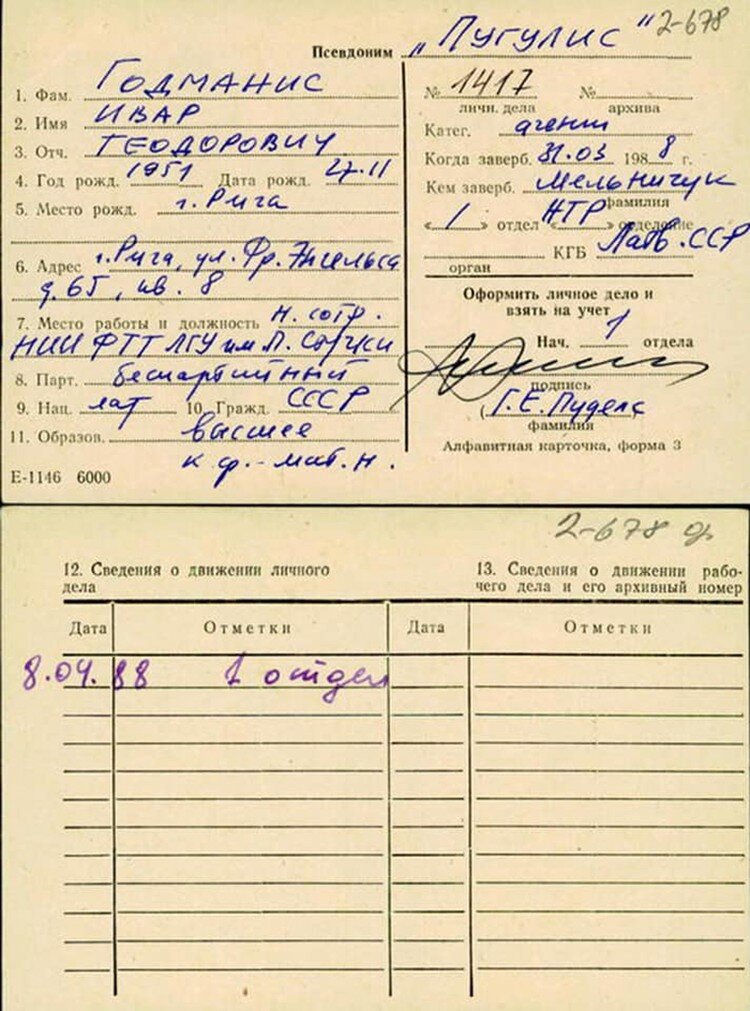 2-678
Псевдоним „Пугулис“
1. Фам. Годманис
2. Имя Ивар
3. Отч. Теодорович
4. Год рожд. 1951 Дата рожд. 27.11
5. Место рожд. г. Рига
6. Адрес г. Рига, ул. Фр. Энгельса
д. 65, кв. 8
7. Место работы и должность н. сотр.
НИИ ФТТ ЛГУ им П. Стучки
8. Парт. беспартийный
9. Нац. лат 10. Гражд. СССР
11. Образов. высшее
к ф.-мат. н.
Е-1146 6000
№ 1417 №
личн. дела архива
Катег. агент
Когда заверб. 31.03 1988 г.
Кем заверб. Мельничук
фамилия
«1» отдел «НТР» отделение
КГБ Латв. ССР
орган
Оформить личное дело и
взять на учет
Нач. 1 отдела
подпись
(Г. Е. Пудела
фамилия
Алфавитная карточка, форма 3
2-678
12. Сведения о движении личного
дела
13. Сведения о движении рабо-
чего дела и его архивный номер
Дата Отметки Дата Отметки
8.04.88 1 отдел